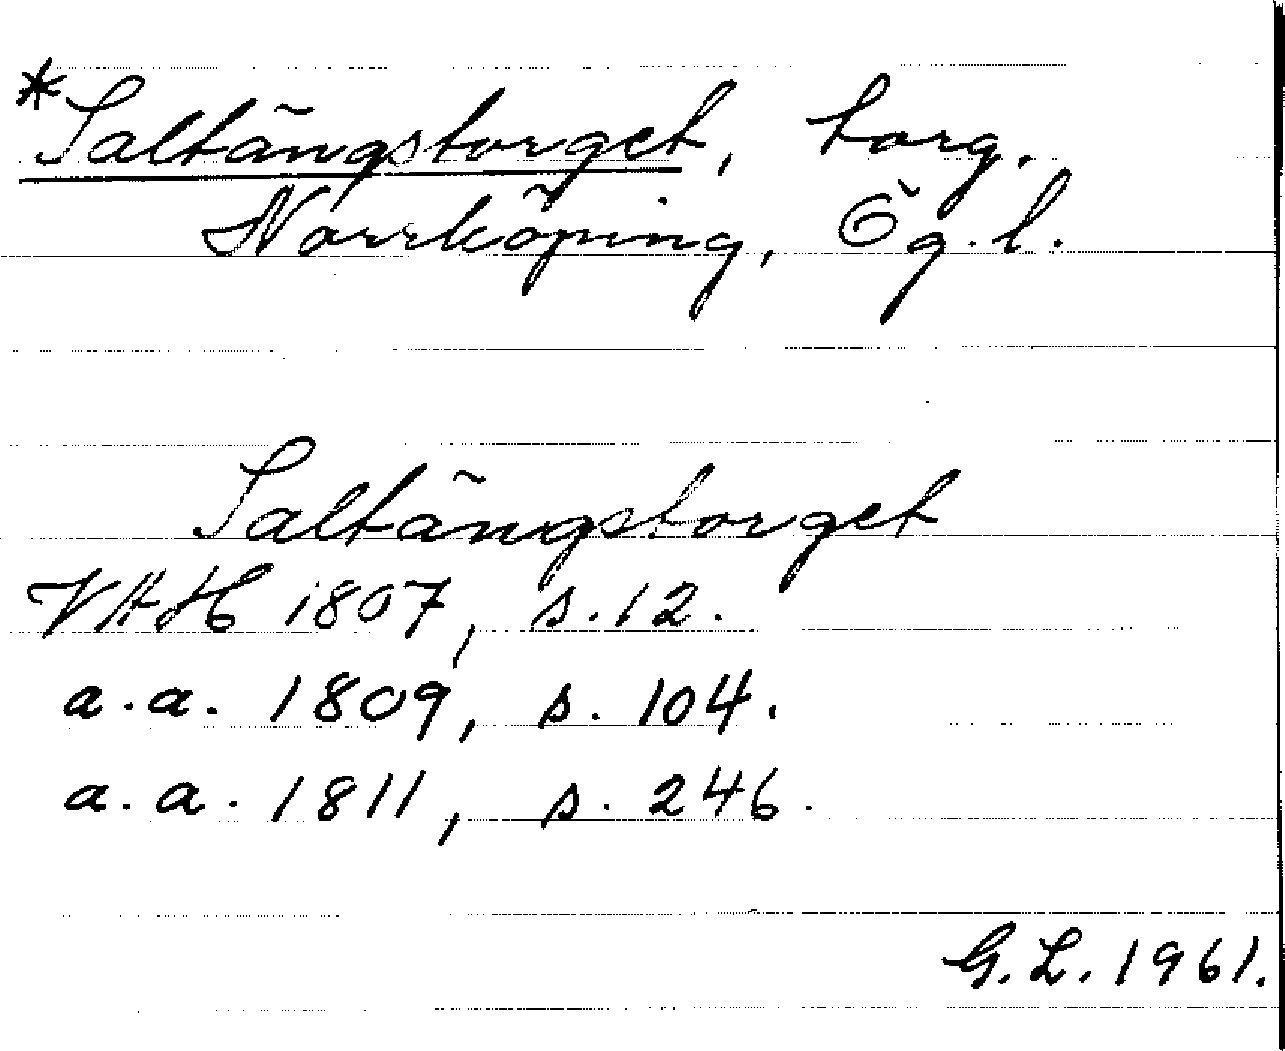 *Saltängstorget, torg.
Norrköping, Ög. l.
Saltängstorget
VAH 1807, s. 12.
a. a. 1809, s. 104.
a. a. 1811, s. 246.
G. L. 1961.